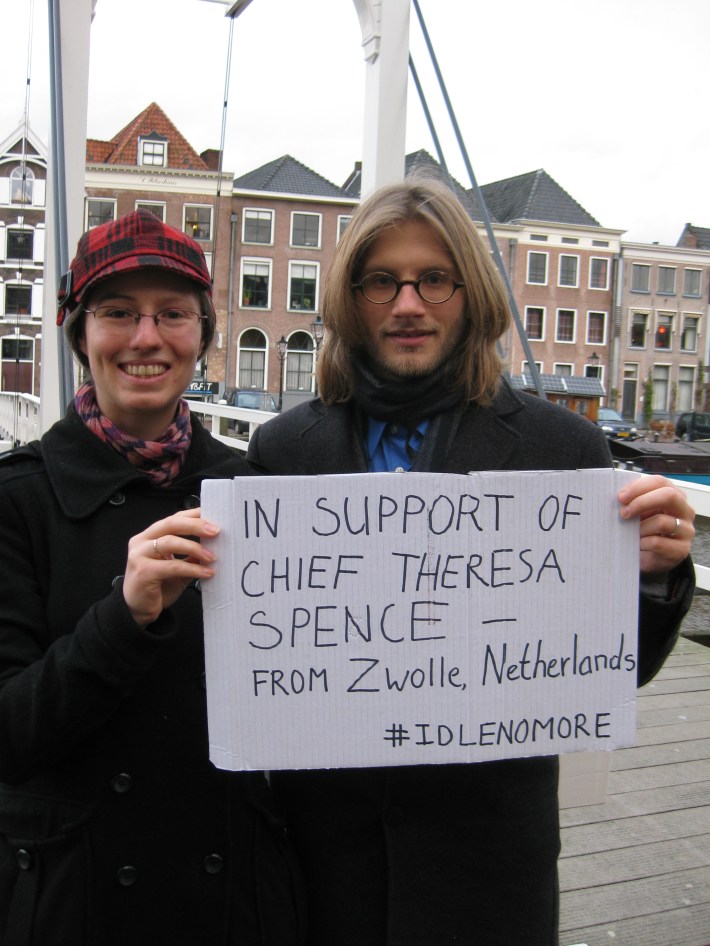 IN SUPPORT OF
CHIEF THERESA
SPENCE –
FROM Zwolle, Netherlands
#IDLENOMORE